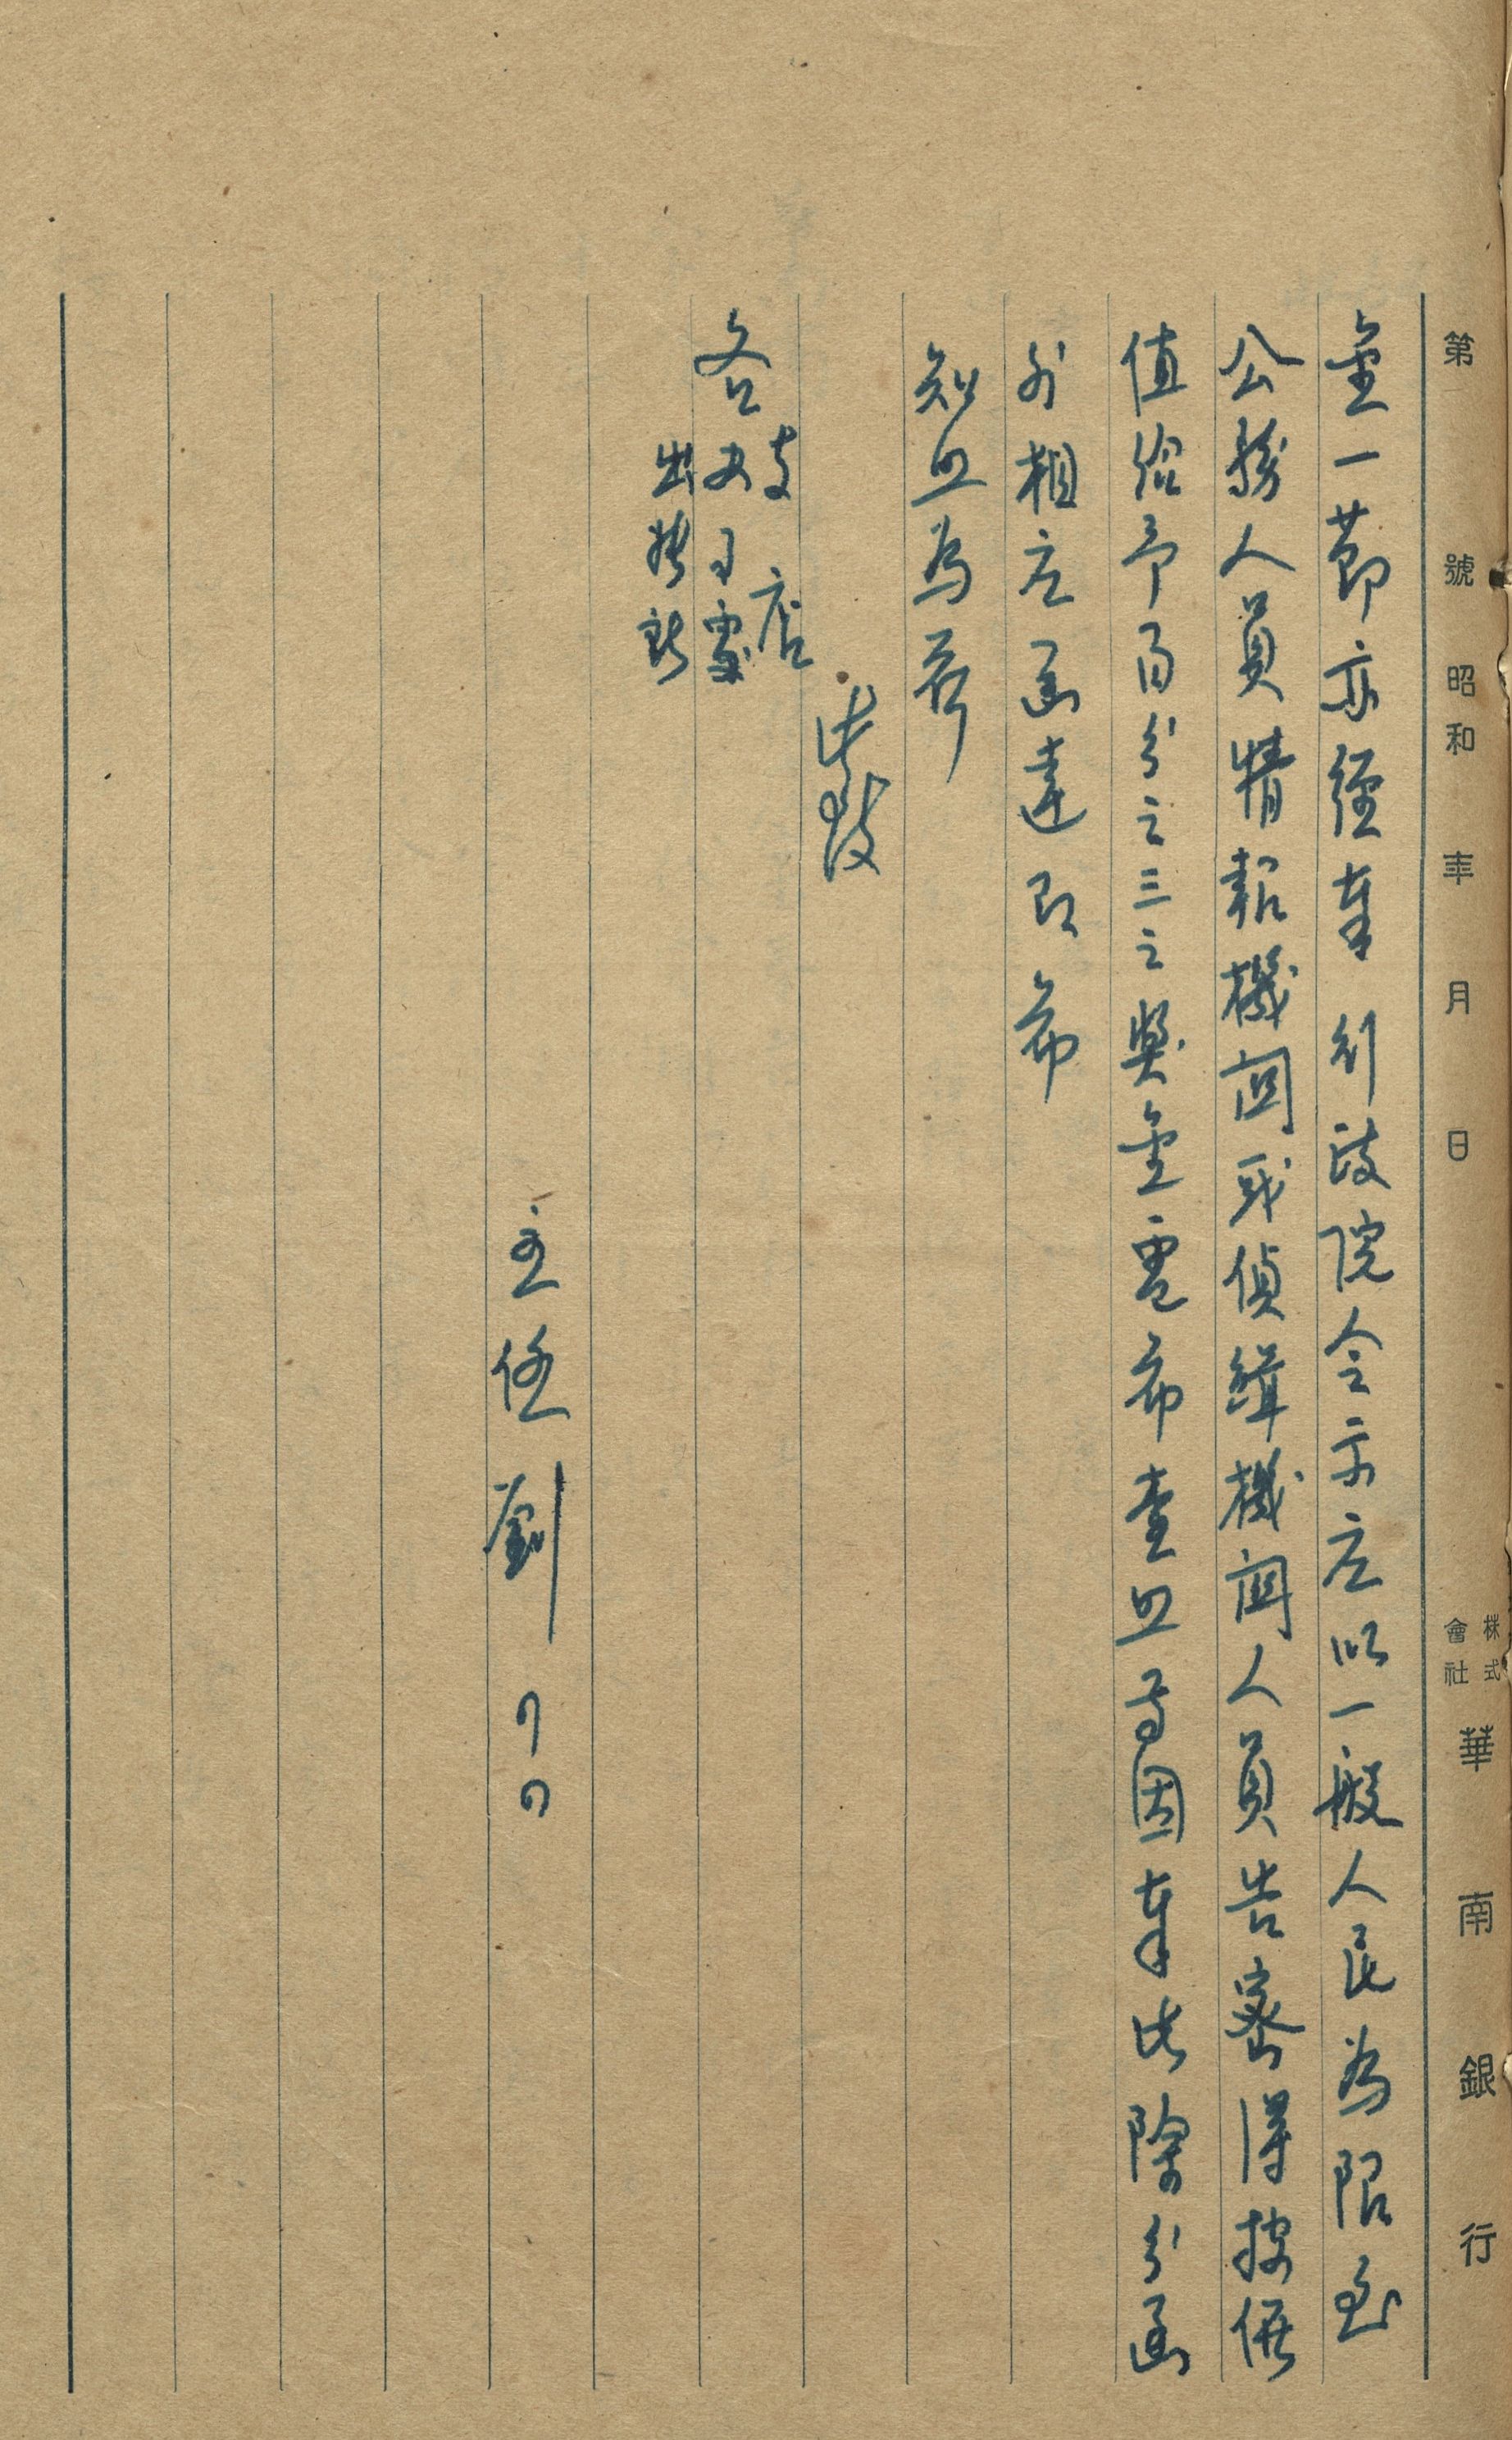 第 號 昭和 年 月 日 株式會社 華南銀行
金一節亦經奉 行政院令示應以一般人民為限至
公務人員情報機関或偵緝機関人員告密得按價
值給予百分之三之獎金電希查照等因奉此除分函
外相應函達即希
知照為荷
此致
各支店
辦事處
出張所
主任劉